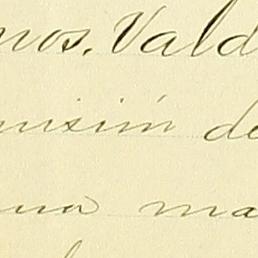 nos. Vald
misión de
una ma